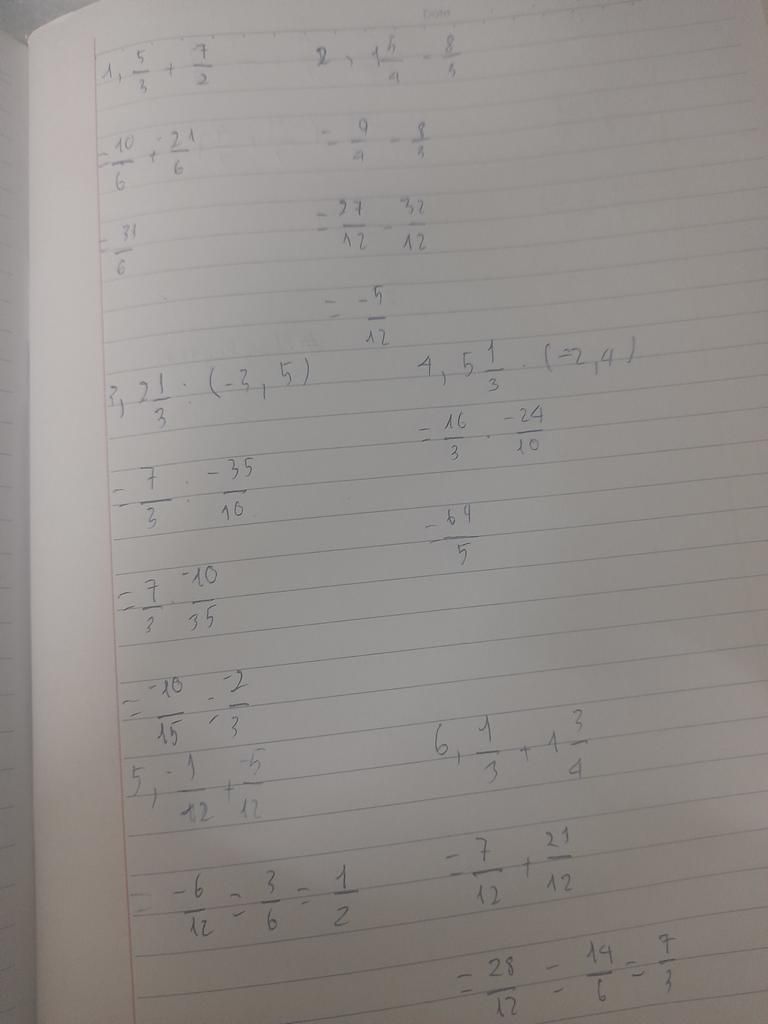 Date
1, 5/3 + 7/2
= 10/6 + 21/6
= 31/6
2, 1 5/4 - 8/3
= 9/4 - 8/3
= 27/12 - 32/12
= -5/12
3, 2 1/3 : (-3,5)
= 7/3 : -35/10
= 7/3 . -10/35
= -10/15 = -2/3
4, 5 1/3 . (-2,4)
= 16/3 . -24/10
= -64/5
5, -1/12 + -5/12
= -6/12 = 3/6 = 1/2
6, 1/3 + 1 3/4
= 7/12 + 21/12
= 28/12 = 14/6 = 7/3